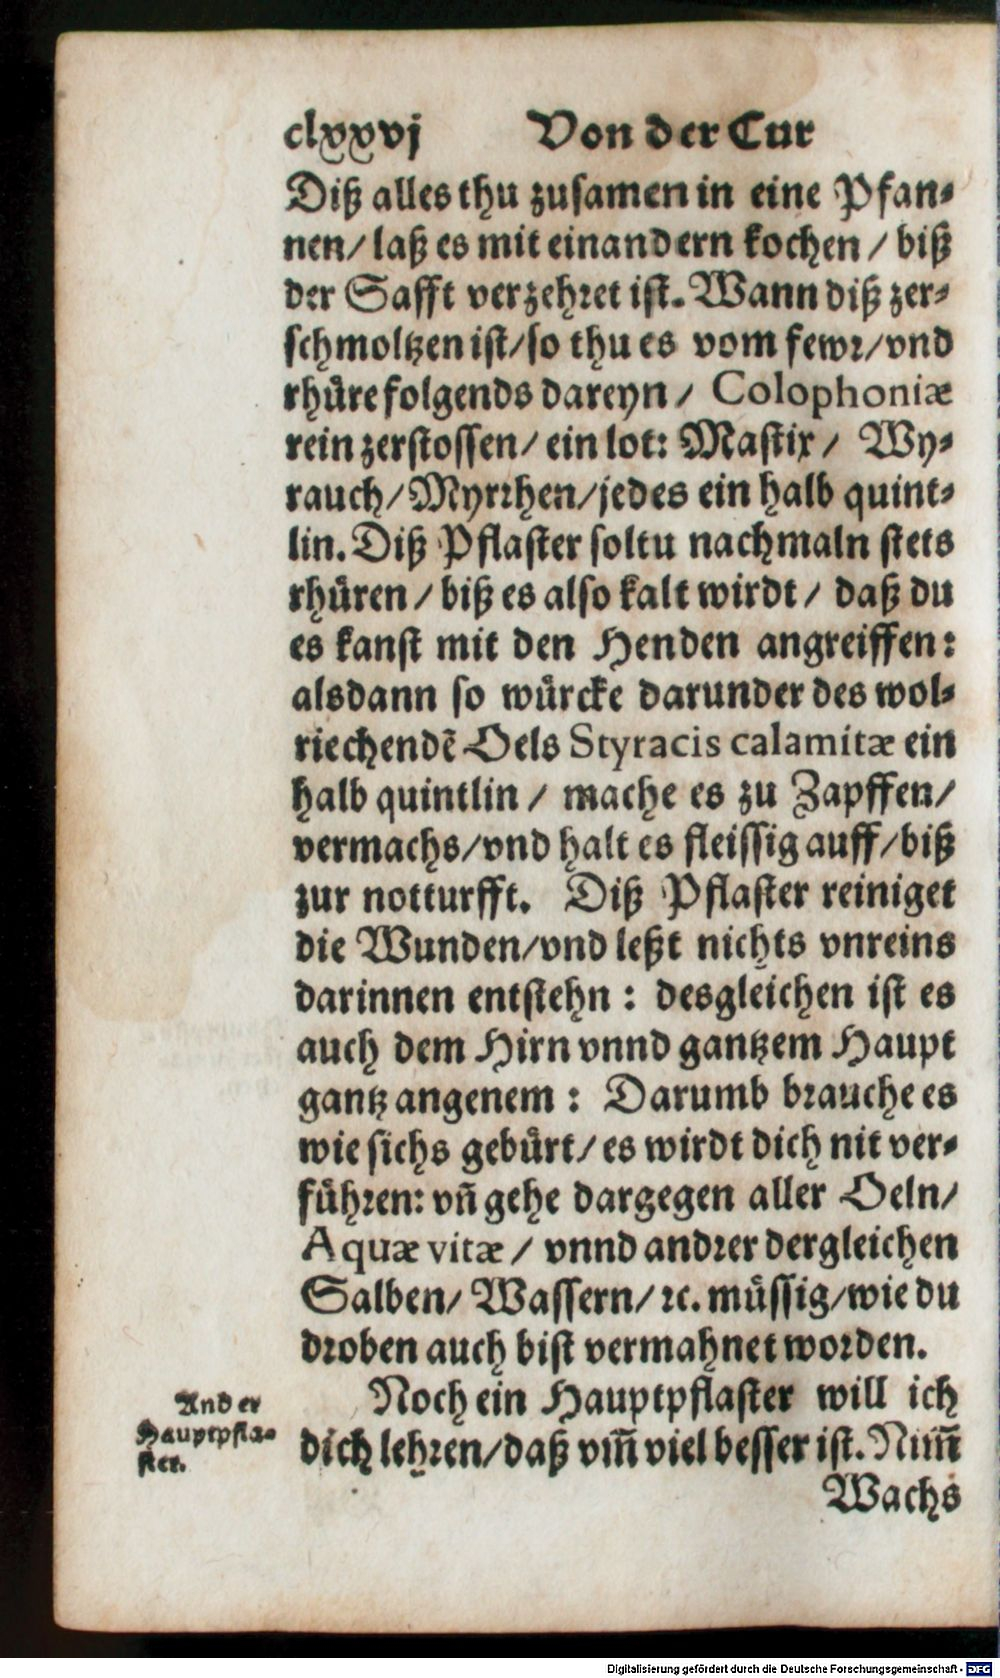 clxxvj Von der Cur
Diß alles thu zusamen in eine Pfan-
nen/ laß es mit einandern kochen / biß
der Safft verzehret ist. Wann diß zer-
schmoltzen ist/ so thu es vom fewr/ vnd
rhůre folgends dareyn / Colophoniæ
rein zerstossen/ ein lot: Mastix / Wy-
rauch/ Myrrhen/ jedes ein halb quint-
lin. Diß Pflaster soltu nachmaln stets
rhůren / biß es also kalt wirdt / daß du
es kanst mit den Henden angreiffen:
alsdann so wůrcke darunder des wol-
riechendẽ Oels Styracis calamitæ ein
halb quintlin / mache es zu Zapffen/
vermachs/ vnd halt es fleissig auff/ biß
zur notturfft. Diß Pflaster reiniget
die Wunden/ vnd leßt nichts vnreins
darinnen entstehn : desgleichen ist es
auch dem Hirn vnnd gantzem Haupt
gantz angenem : Darumb brauche es
wie sichs gebůrt/ es wirdt dich nit ver-
fůhren: vñ gehe dargegen aller Oeln/
Aquæ vitæ / vnnd andrer dergleichen
Salben/ Wassern/ ꝛc. můssig/ wie du
droben auch bist vermahnet worden.
Noch ein Hauptpflaster will ich
Ander
Hauptpfla-
ster.
dich lehren/ daß vm̃ viel besser ist. Nim̃
Wachs
Digitalisierung gefördert durch die Deutsche Forschungsgemeinschaft - DFG